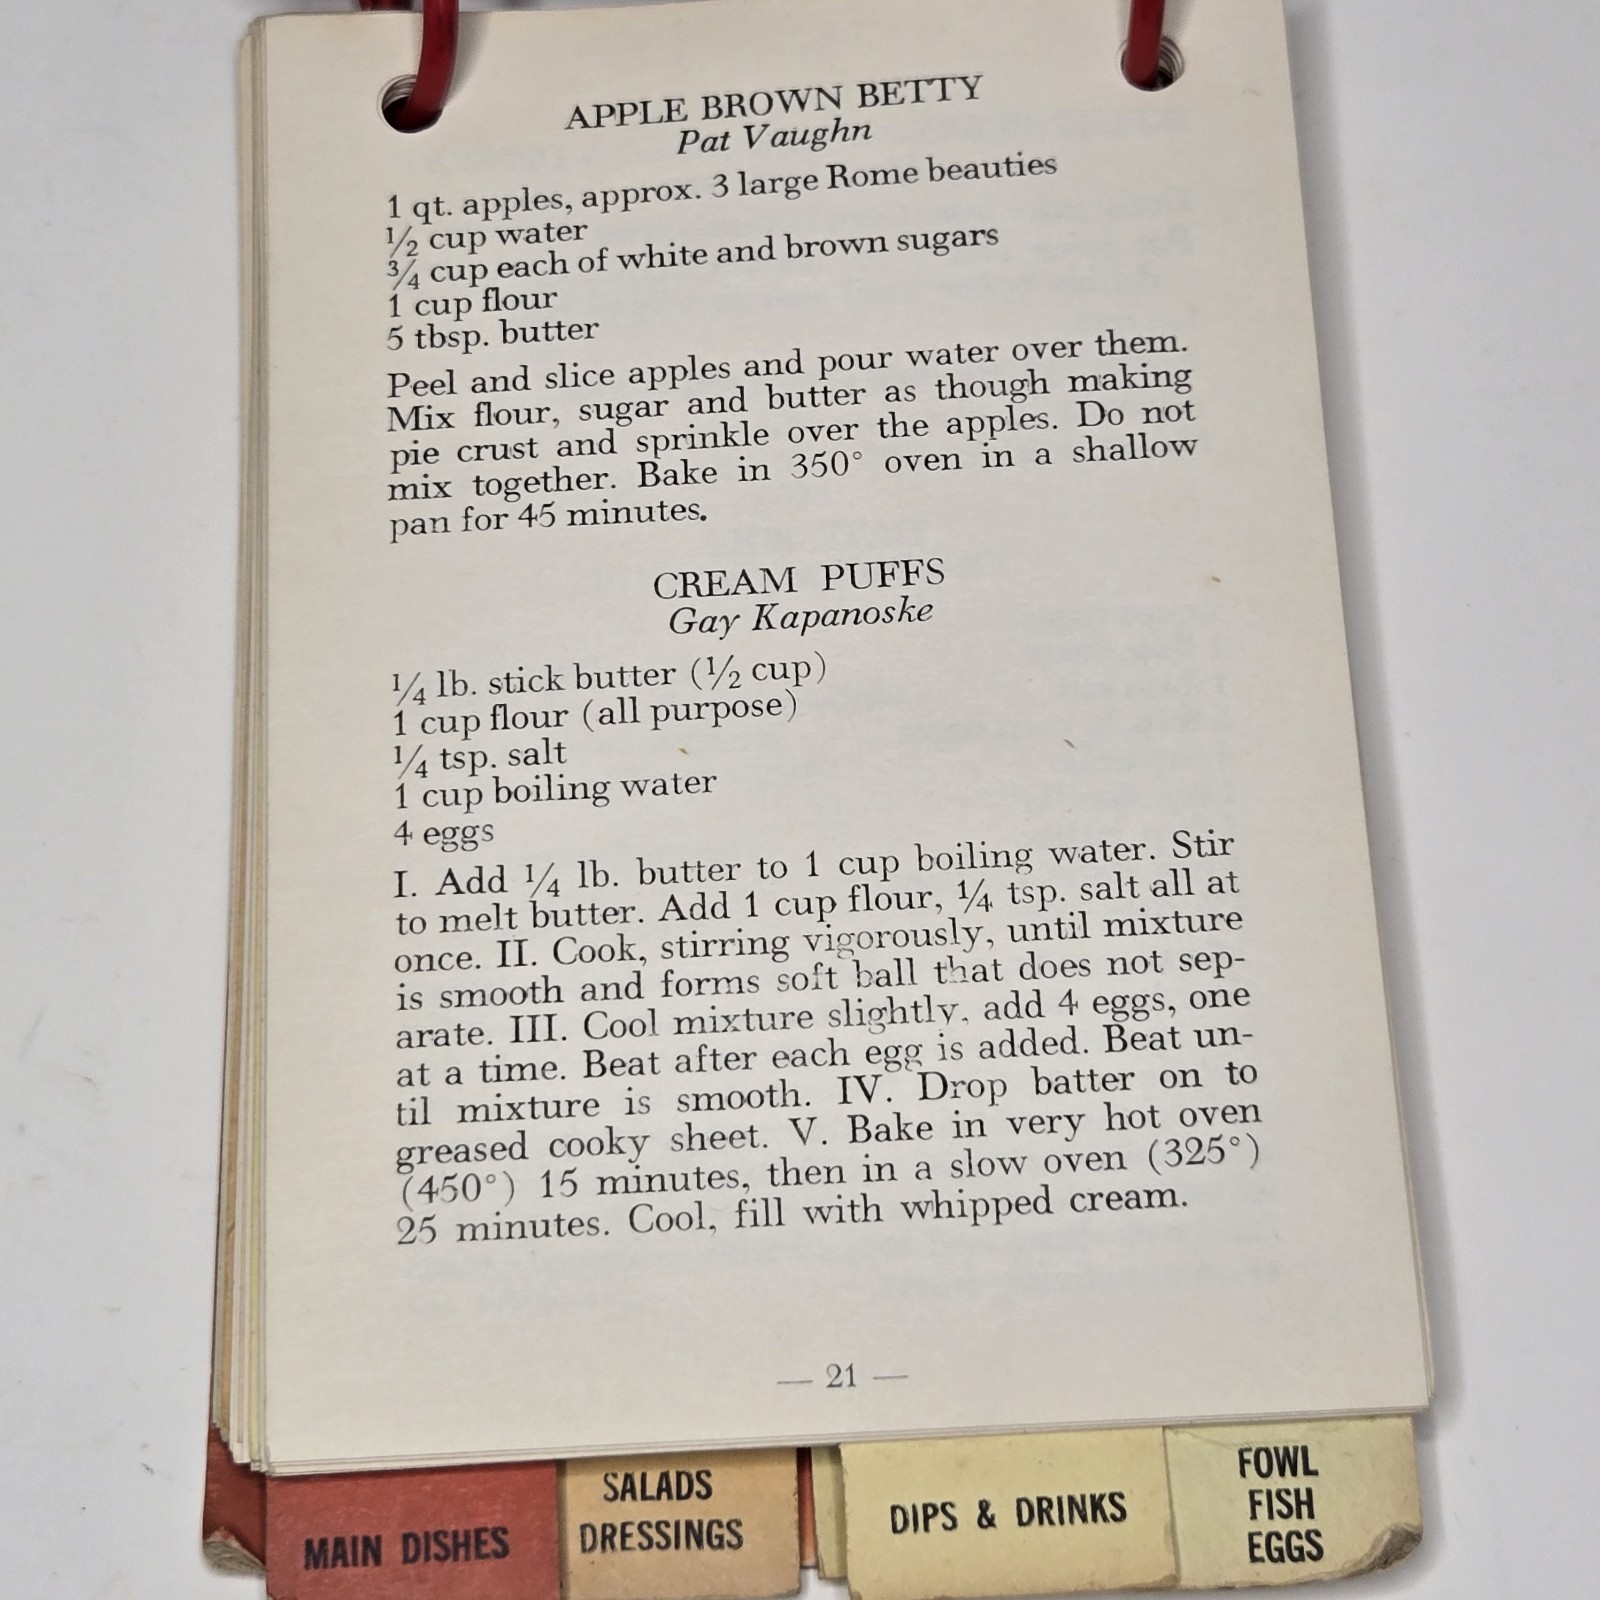 APPLE BROWN BETTY
Pat Vaughn
1 qt. apples, approx. 3 large Rome beauties
½ cup water
¾ cup each of white and brown sugars
1 cup flour
5 tbsp. butter
Peel and slice apples and pour water over them.
Mix flour, sugar and butter as though making
pie crust and sprinkle over the apples. Do not
mix together. Bake in 350° oven in a shallow
pan for 45 minutes.
CREAM PUFFS
Gay Kapanoske
¼ lb. stick butter (½ cup)
1 cup flour (all purpose)
¼ tsp. salt
1 cup boiling water
4 eggs
I. Add ¼ lb. butter to 1 cup boiling water. Stir
to melt butter. Add 1 cup flour, ¼ tsp. salt all at
once. II. Cook, stirring vigorously, until mixture
is smooth and forms soft ball that does not sep-
arate. III. Cool mixture slightly, add 4 eggs, one
at a time. Beat after each egg is added. Beat un-
til mixture is smooth. IV. Drop batter on to
greased cooky sheet. V. Bake in very hot oven
(450°) 15 minutes, then in a slow oven (325°)
25 minutes. Cool, fill with whipped cream.
— 21 —
MAIN DISHES
SALADS
DRESSINGS
DIPS & DRINKS
FOWL
FISH
EGGS